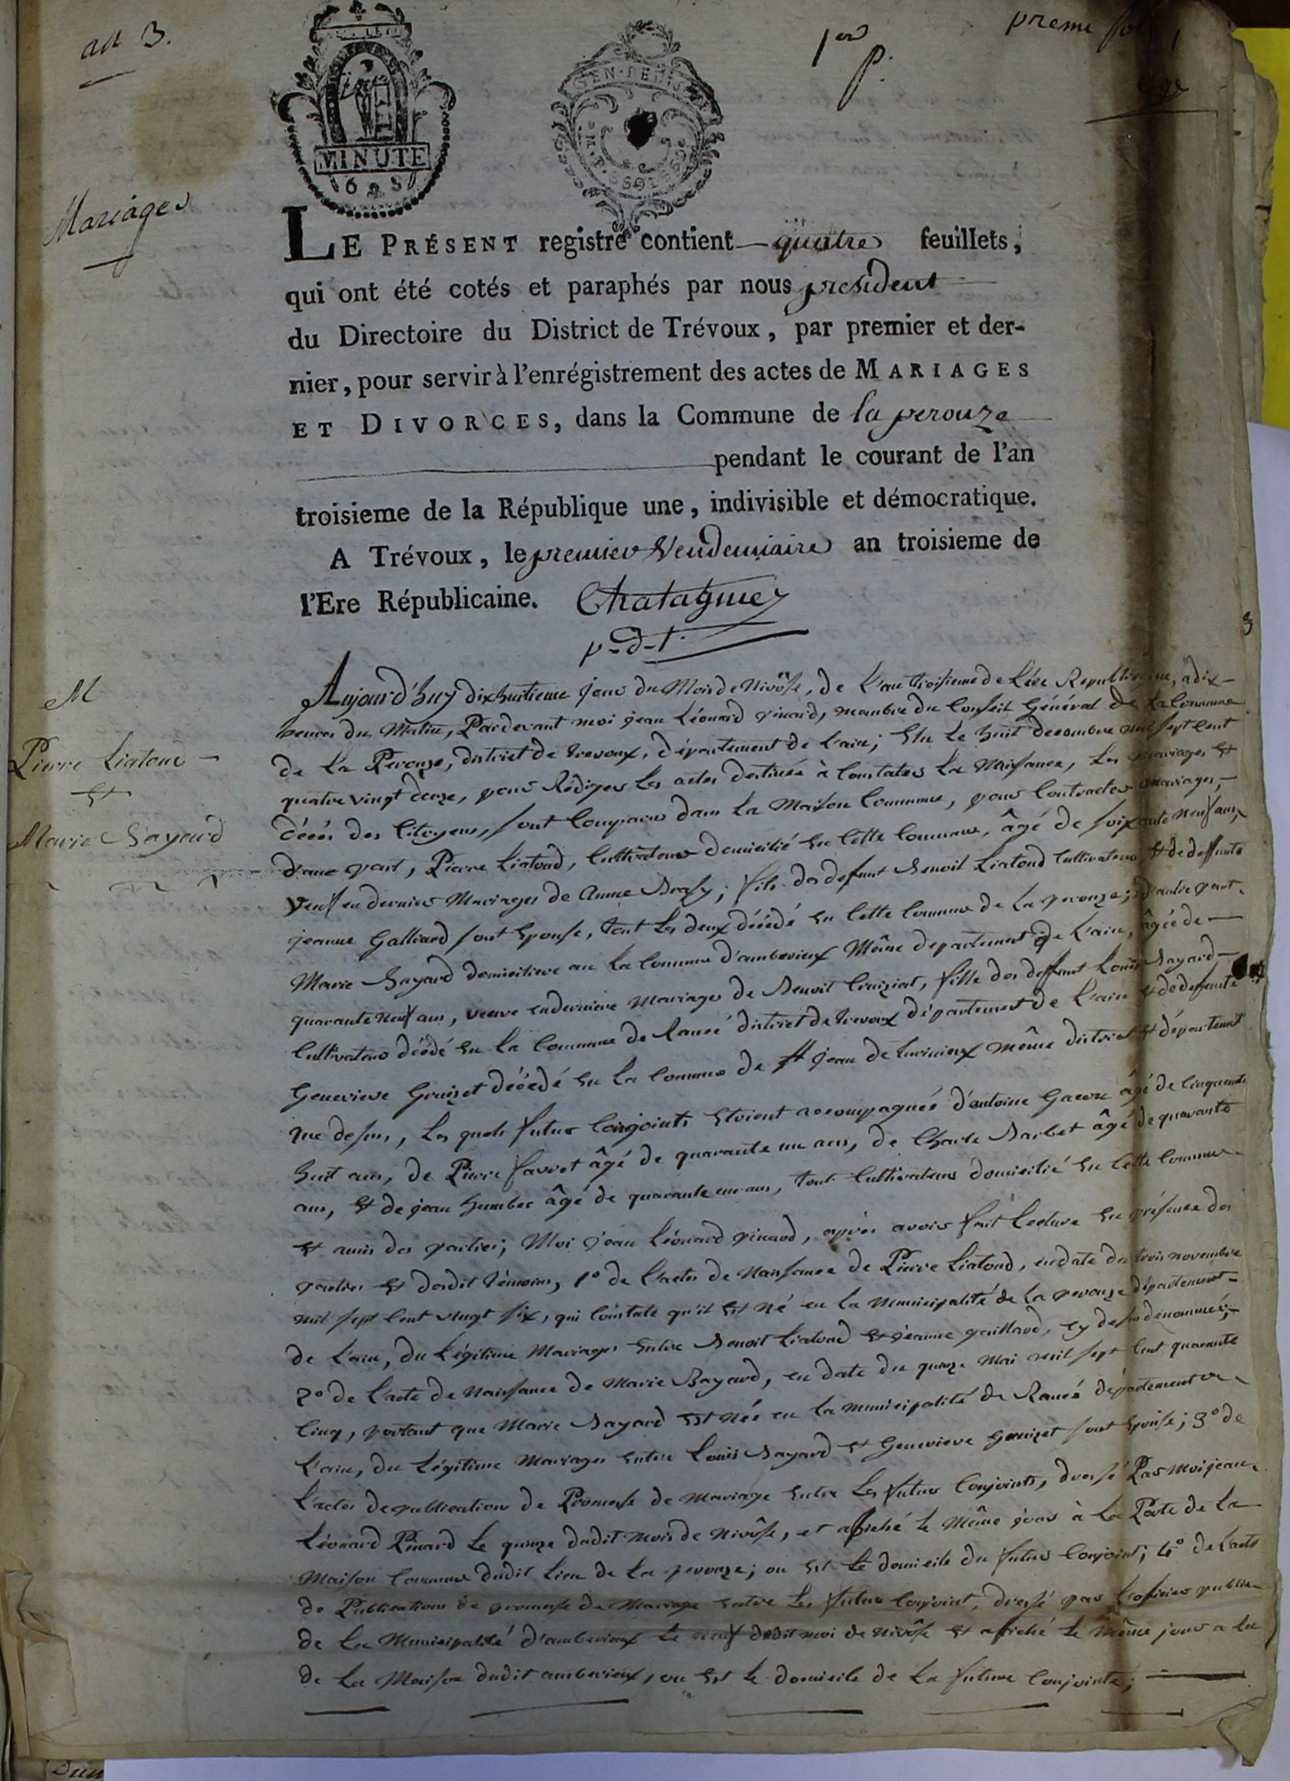 an 3.
1er
p.
Mariages
MINUTE
6 s
LE PRÉSENT registre contient quatre feuillets,
qui ont été cotés et paraphés par nous president
du Directoire du District de Trévoux, par premier et der-
nier, pour servir à l'enrégistrement des actes de MARIAGES
ET DIVORCES, dans la Commune de la perouze
pendant le courant de l'an
troisieme de la République une, indivisible et démocratique.
A Trévoux, le premier Vendemiaire an troisieme de
l'Ere Républicaine.
p.d.t.
M
Pierre Liatoud
et
Marie Bayard
Aujourd'huy dixhuitieme jour du Mois de Nivôse, de l'an troisieme de l'ère Republicaine, a dix
heures du Matin, Pardevant moi jean Léonard pinard, membre du Conseil Général de la Commune
de la Perouze, district de trevoux, département de l'ain; Elu le huit decembre mil sept cent
quatre vingt douze, pour Rédiger les actes destinés à Constater la Naissance, les mariages et
décés des Citoyens, sont Comparus dans la Maison Commune, pour Contracter mariages,
d'une part, Pierre Liatoud, Cultivateur domicilié en cette Commune, âgé de soixante neuf ans,
Veuf en dernier Mariages de Anne ; fils de defunt Benoit Liatoud Cultivateur et de deffunte
jeanne Galliard sont Epouse, tout les deux décédé en cette Commune de la perouze; d'autre part
Marie Bayard domiciliere en la Commune d'amberieux Même departement de l'ain, âgée de
quarante neuf ans, veuve en derniere mariages de Benoit , fille de deffunt Louis Bayard
Cultivateur décédé en la Commune de Rancé district de trevoux département de l'ain et de defunte
Genevieve décédé en la Commune de st jean de même district et département
que desus, les quels futur Conjoints étoient accompagnés d'antoine âgé de cinquante
huit ans, de Pierre favrot âgé de quarante un ans, de Charle Barbet âgé de quarante
ans, et de jean humber âgé de quarante ans, tout Cultivateurs domicilié en cette Commune
et amis des parties; Moi jean Léonard pinard, après avoir fait lecture en présence des
parties et desdit témoins, 1º de l'actes de Naissance de Pierre Liatoud, en date du trois novembre
mil sept cent vingt six, qui constate qu'il est né en la municipalité de la perouze département
de l'ain, du légitime Mariages entre Benoit Liatoud et jeanne gaillard, cy desus dénommés;
2º de l'acte de Naissance de Marie Bayard, en date du quinze mai mil sept cent quarante
cinq, portant que Marie Bayard est née en la municipalité de Rancé département de
l'ain, du légitime Mariages entre Louis Bayard et Genevieve sont Epouse; 3º de
l'actes de publication de Promesse de Mariage entre les futur Conjoints, dressé Par moi jean
Léonard Pinard le quinze dudit mois de Nivôse, et affiché le Même jour à la Porte de la
Maison Commune dudit lieu de la perouze; ou est le domicile du futur Conjoint; 4º de l'acte
de Publication de promesse de Mariage entre les futur Conjoint, dressé par l'officier public
de la Municipalité d'amberieux le neuf dudit moi de nivôse et affiché le même jour a la
de la Maison dudit amberieux, ou est le domicile de la future Conjointe;